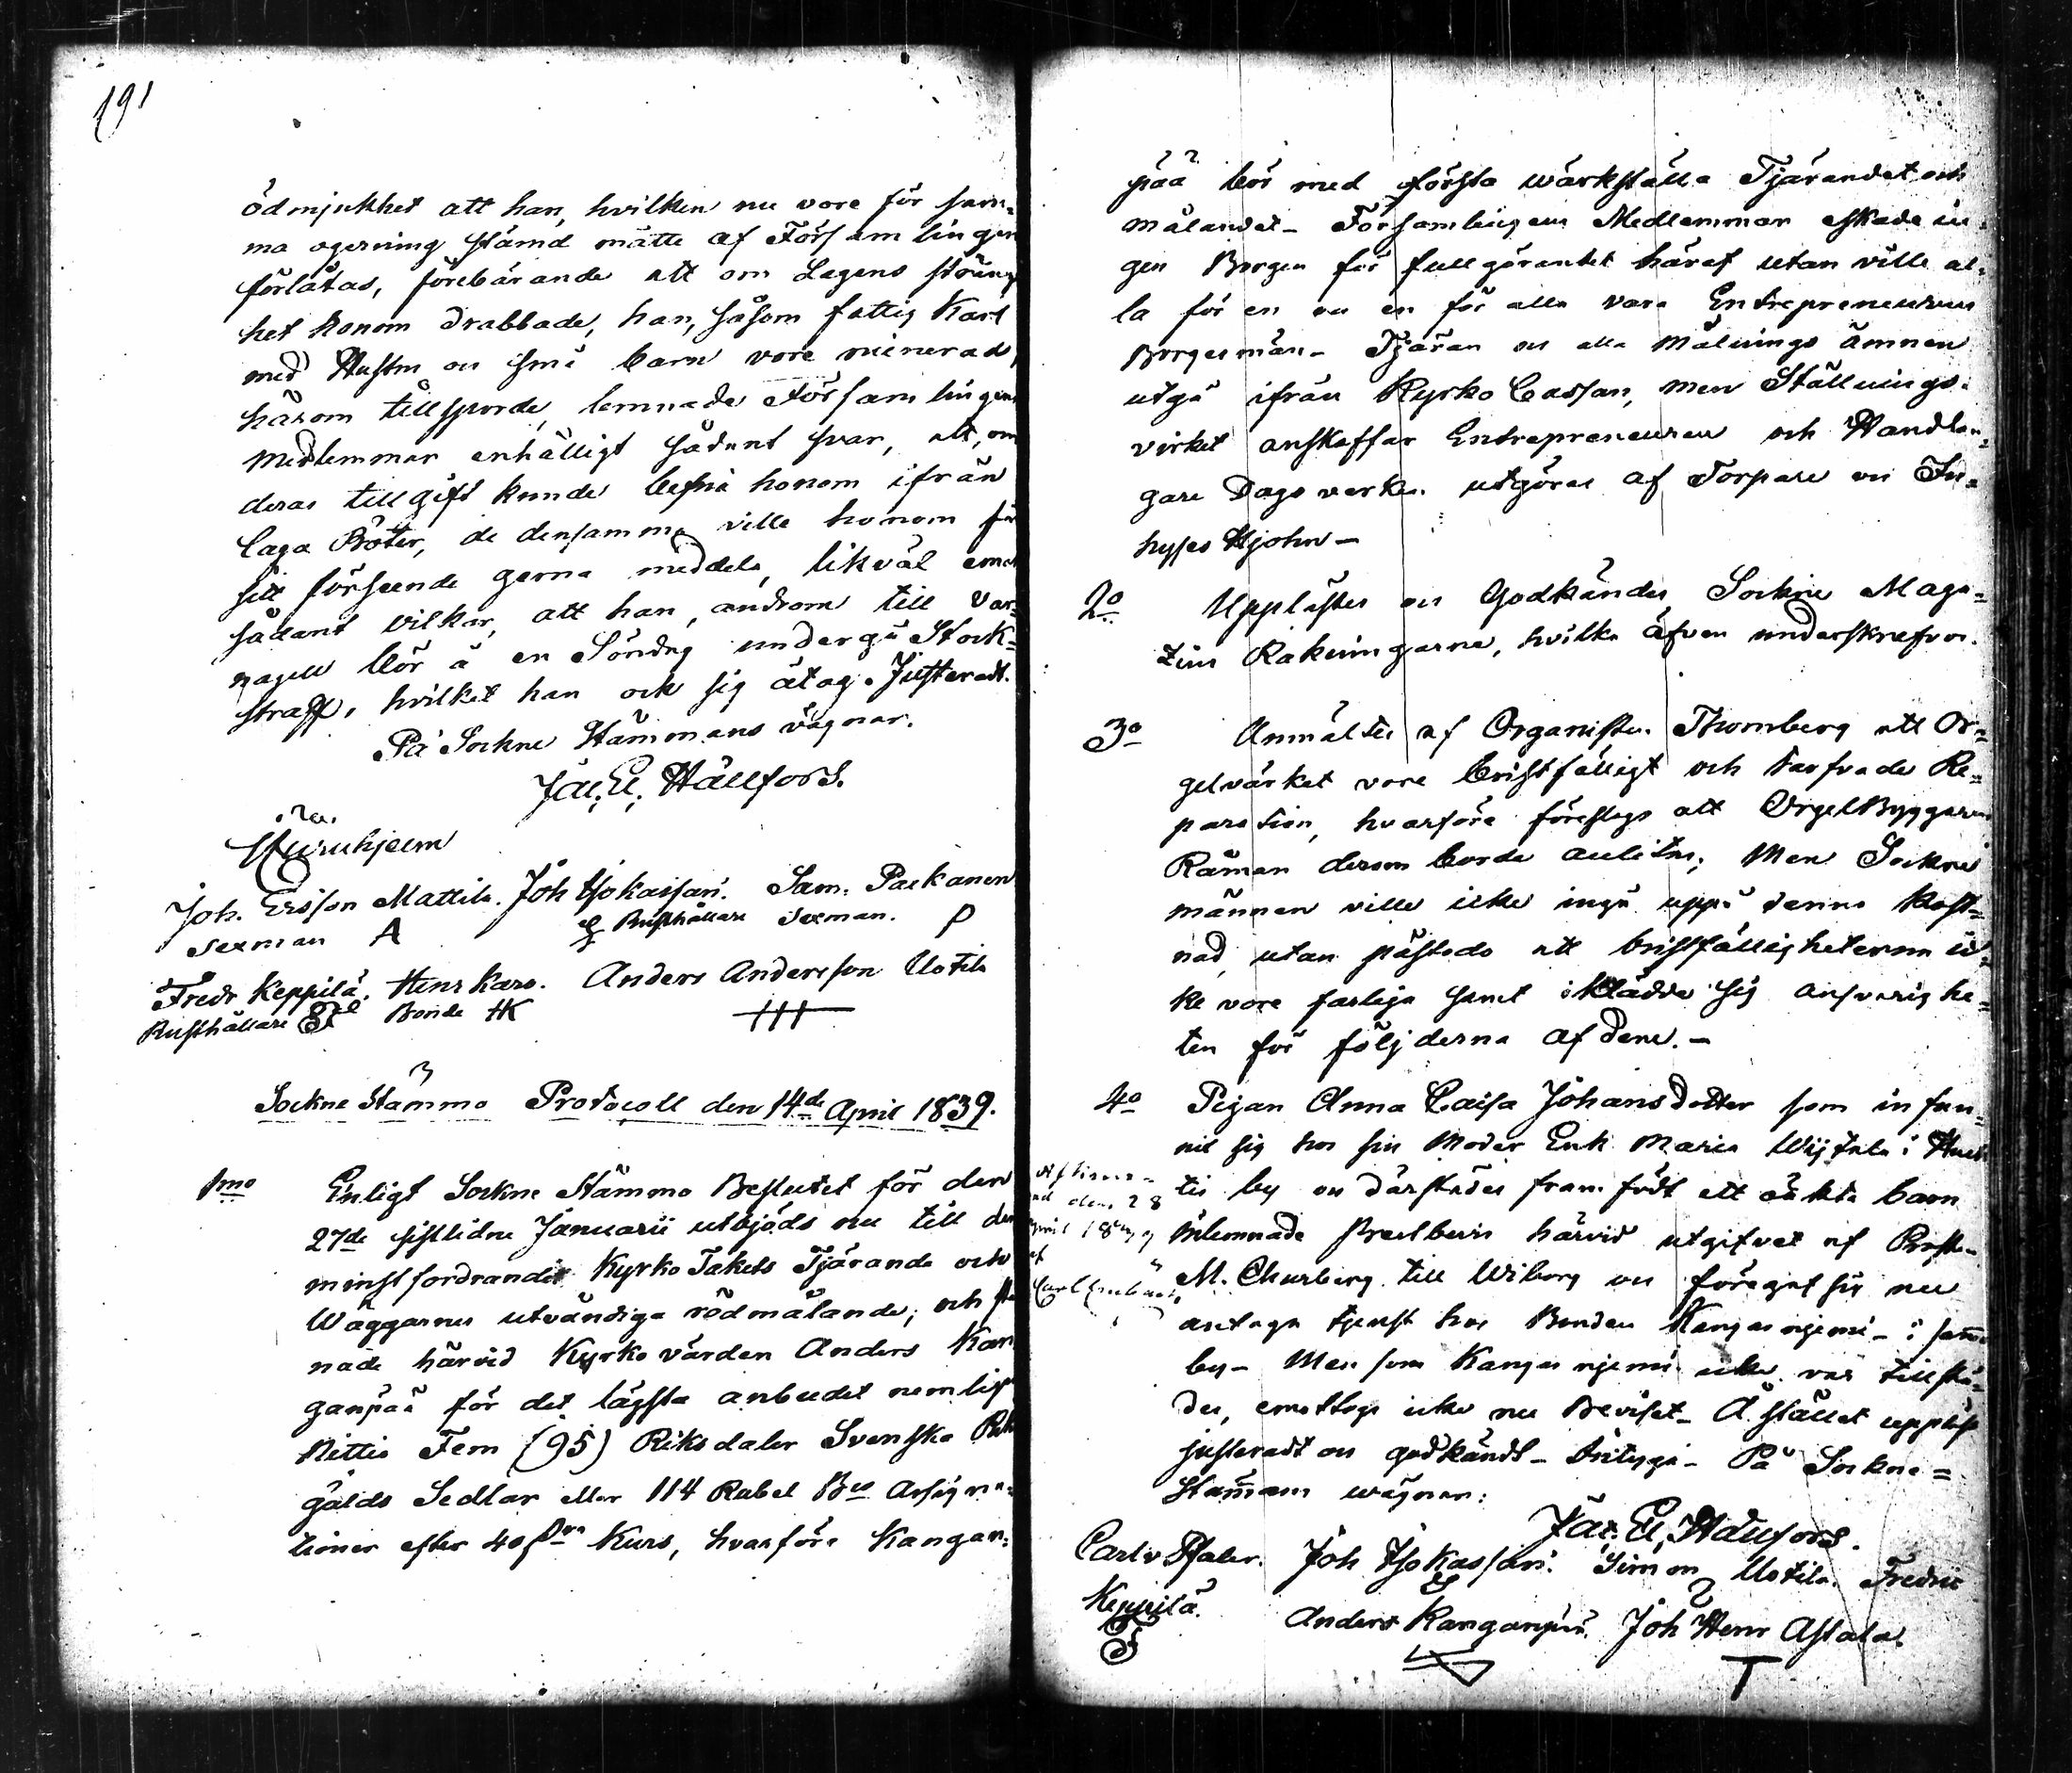 191
ödmjukhet att han, hvilken nu vore för sam=
ma ogerning stämd måtte af Församlingen
förlåtas, förebärande att om Lagens sträng
het honom drabbade, han, såsom fattig Karl
med Hustru och små barn vore ruinerad,
härom tillsporde, lemnade Församlingens
Medlemmar enhälligt sådant svar, att, om
deras tillgift kunde befria honom ifrån
laga Böter, de densamma ville honom för
sitt förseende gerna meddela, likväl emot
sådant vilkor, att han, androm till var=
nagel bör å en Söndag undergå Stock=
straff, hvilket han ock sig åtog. Justeradt.
På Sockne Stämmans vägnar.
Jac. El. Hällfors.
Joh. Ersson Mattila. Joh Isokassari. Sam. Packanen
Sexman A Rusthållare Sexman. P
Fredr Keppilä. Henr Karo. Anders Andersson Uotila
Rusthållare Bonde HK
Sockne Stämmo Protocoll den 14de April 1839.
1mo Enligt Sockne Stämmo Beslutet för den
27de sistlidne Januarii utbjöds nu till den
minstfordrande Kyrko Takets Tjärande och
Wäggarnes utvändiga rödmålande; och stan
nade härvid Kyrkovärden Anders Kan
ganpää för det lägsta anbudet nemligen
Nittio Fem (95) Riksdaler Svenska Riks
gälds Sedlar eller 114 Rubel Bco Assigna=
tioner efter Kurs, hvarföre Kangan=
pää bör med första wärkställa Tjärandet och
målandet_ Församlingens Medlemmar eskade in=
gen Borgen för fullgörandet häraf utan ville al=
la för en och en för alla vara Entrepreneurens
Borgesmän_ Tjäran och alla målnings ämnen
utgå ifrån Kyrko Cassan, men Ställnings=
virket anskaffar Entrepreneuren och Handtlan=
gare Dagsverken utgöras af Torpare och In=
hyses Hjohn_
2o Upplästes och Godkändes Sockne Maga=
zins Räkningarne, hvilka äfven underskrefvos.
3o Anmältes af Organisten Thomberg att Or=
gelvärket vore bristfälligt och tarfvade Re=
paration, hvarföre föreslogs att OrgelByggaren
Råman derom borde anlitas; Men Sockne
männen ville icke ingå uppå denna kost=
nad, utan påstodo att bristfälligheterna ic=
ke vore farliga samt iklädde sig ansvarighe=
ten för följderna af dem._
4o Pigan Anna Caisa Johansdotter som infun=
nit sig hos sin Moder Enk Maria i
by och därstädes framfödt ett oäkta barn
inlemnade Prestbevis härvid utgifvet af
M. Churberg till Wiborg och föregaf sig nu
antaga tjenst hos Bonden Kangasnjemi_ i samma
by_ Men som Kangasnjemi icke var tillstä=
des, emottogs icke nu Beviset_ Å stället uppläst
justeradt och godkändt_ betygar_ På Sockne=
Stämmans wägnar:
Jac. El. Hällfors.
Carl v Pfaler. Joh Isokassari. Simon Uotila. Fredric
Keppilä. Anders Kanganpää. Joh Henr Astala.
den 28